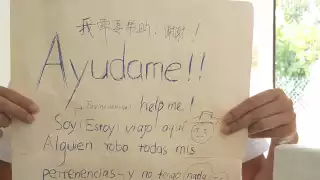 我需要帮助，谢谢！
Ayudame!!
help me!
Soy/Estoy viajo aquí
Alguien robo todas mis
pertenencias y no tengo nada